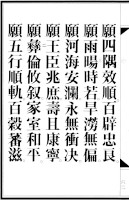 願四隅效順百辟忠良
願雨暘時若旱澇無偏
願河海安瀾永無衝決
願王臣兆庶壽且康寧
願彝倫攸叙家室和平
願五行順軌百穀蕃滋